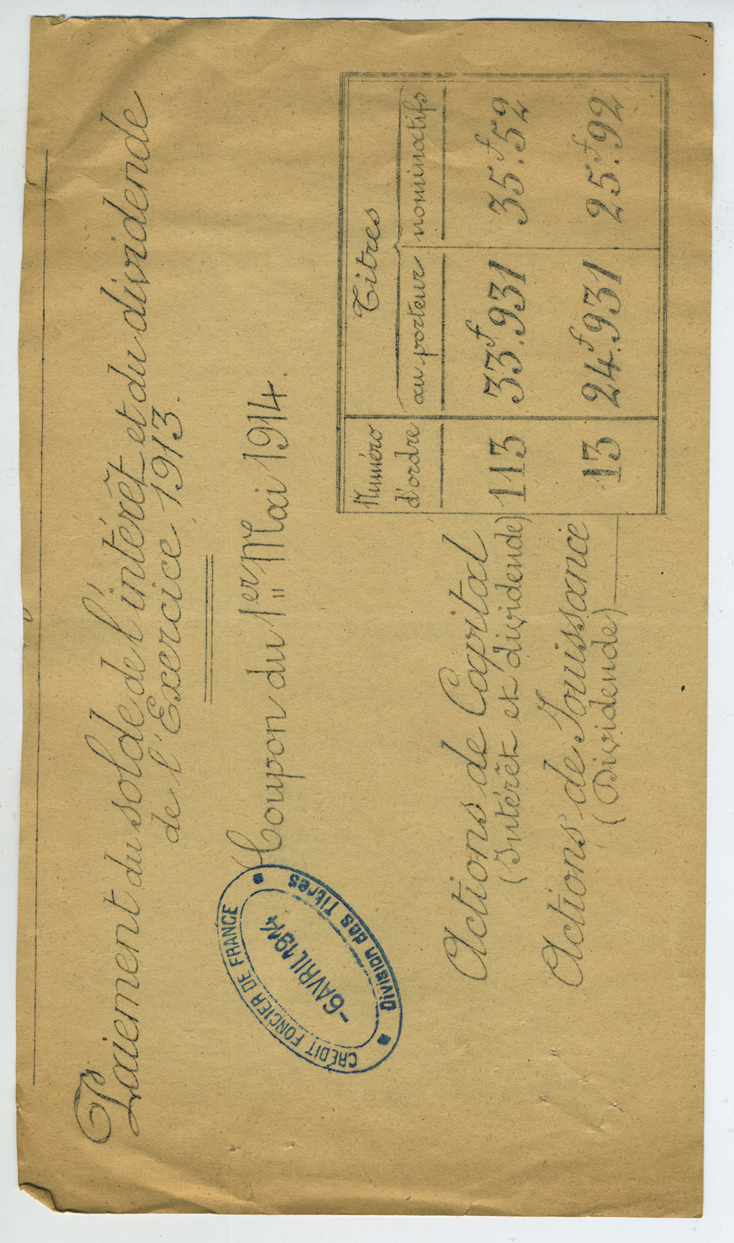 Paiement du solde de l'intérêt et du dividende
de l'Exercice 1913.
Coupon du 1er Mai 1914.
CRÉDIT FONCIER DE FRANCE
-6 AVRIL 1914
Division des Titres
Numéro d'ordre Titres
au porteur nominatifs
Actions de Capital 113 33f.931 35f.52
(Intérêt et dividende)
Actions de Jouissance 13 24f.931 25f.92
(Dividende)